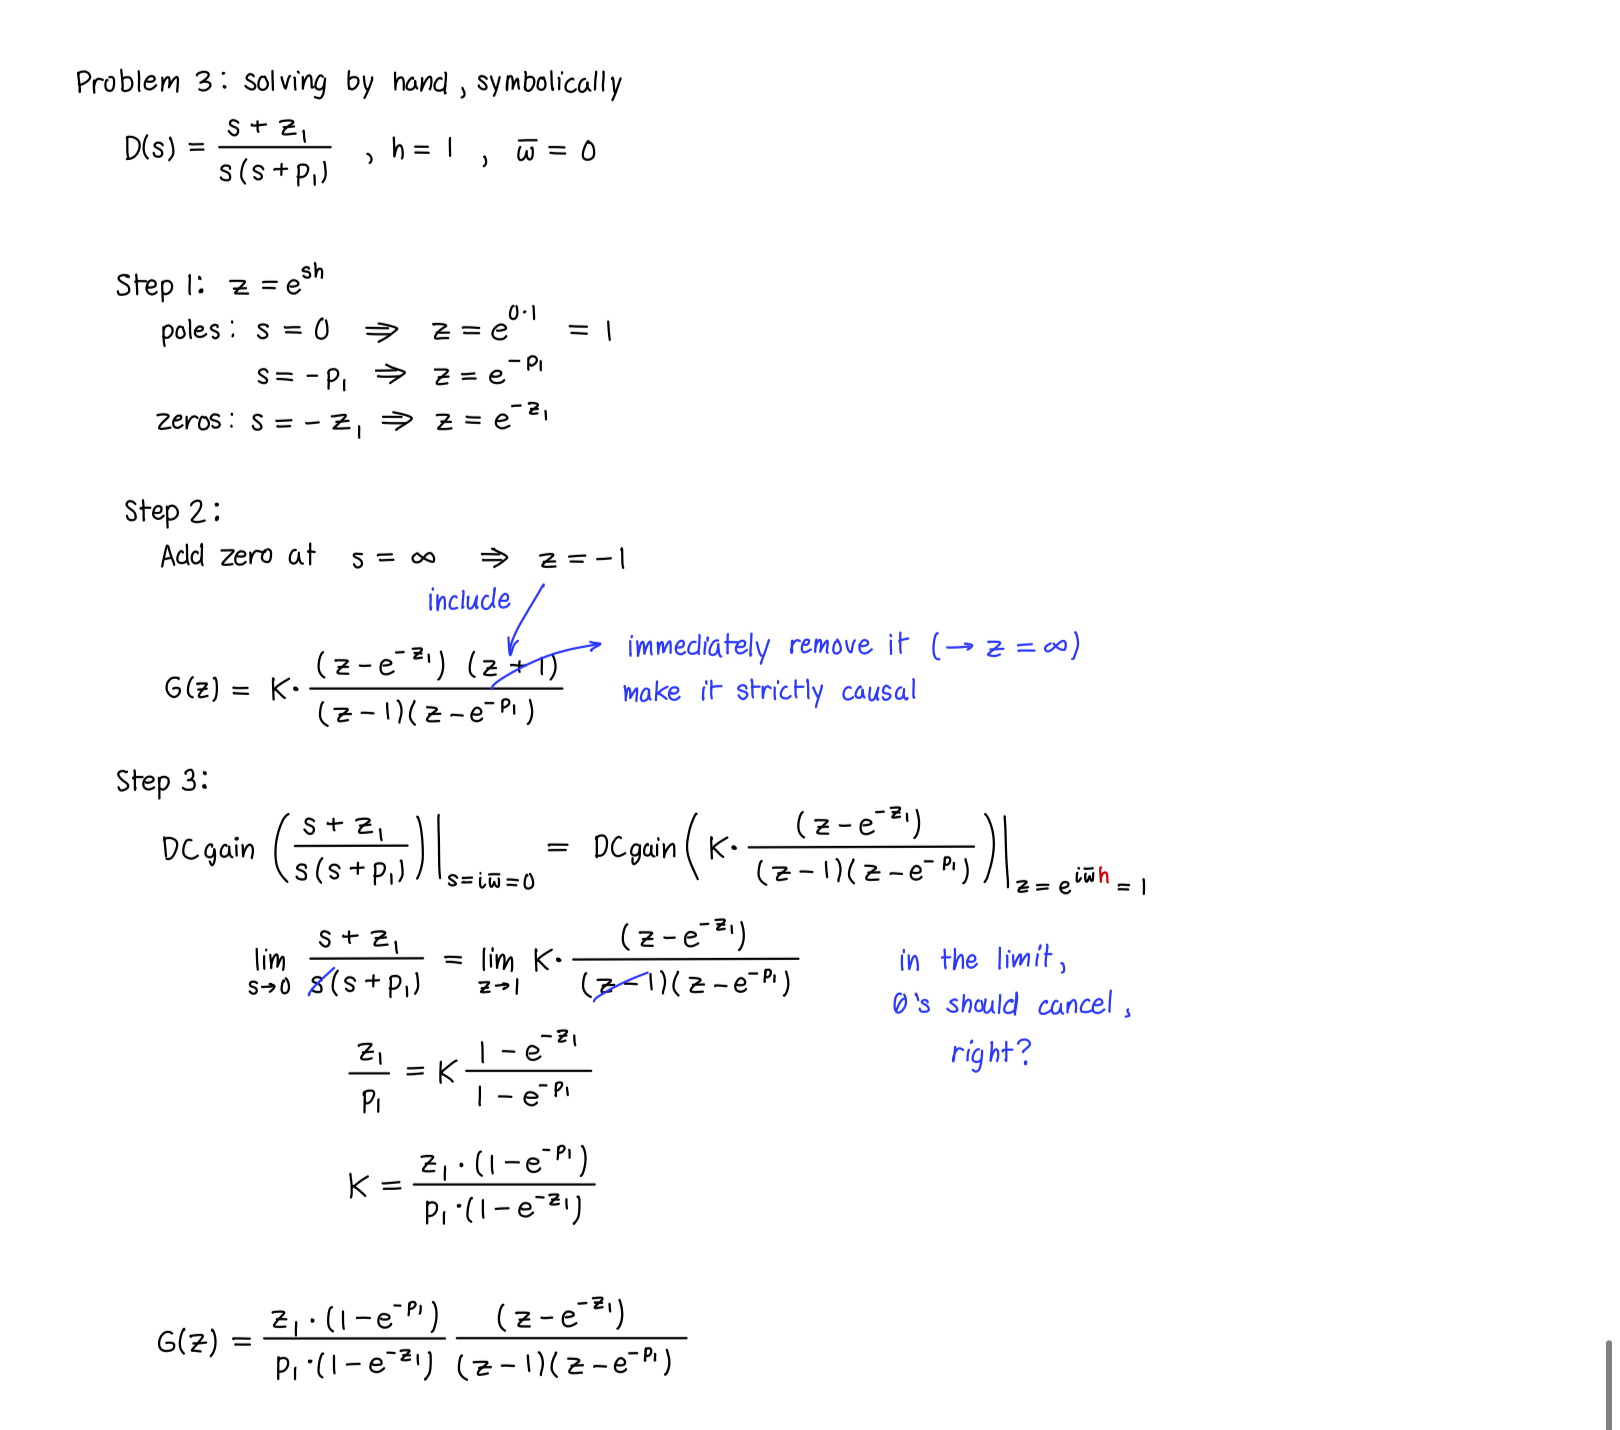 Problem 3: solving by hand, symbolically
D(s) = (s + z₁) / (s(s + p₁)) , h = 1 , w̅ = 0
Step 1: z = e^(sh)
poles: s = 0 ⇒ z = e^(0·1) = 1
s = -p₁ ⇒ z = e^(-p₁)
zeros: s = -z₁ ⇒ z = e^(-z₁)
Step 2:
Add zero at s = ∞ ⇒ z = -1
include
immediately remove it (→ z = ∞)
make it strictly causal
G(z) = K· ((z - e^(-z₁)) (z + 1)) / ((z - 1)(z - e^(-p₁)))
Step 3:
DCgain ((s + z₁) / (s(s + p₁)))|_(s = iw̅ = 0) = DCgain (K· (z - e^(-z₁)) / ((z - 1)(z - e^(-p₁))))|_(z = e^(iw̅h) = 1)
lim_(s→0) (s + z₁) / (s(s + p₁)) = lim_(z→1) K· (z - e^(-z₁)) / ((z - 1)(z - e^(-p₁)))
in the limit,
0's should cancel,
right?
z₁ / p₁ = K (1 - e^(-z₁)) / (1 - e^(-p₁))
K = (z₁·(1 - e^(-p₁))) / (p₁·(1 - e^(-z₁)))
G(z) = (z₁·(1 - e^(-p₁))) / (p₁·(1 - e^(-z₁))) (z - e^(-z₁)) / ((z - 1)(z - e^(-p₁)))